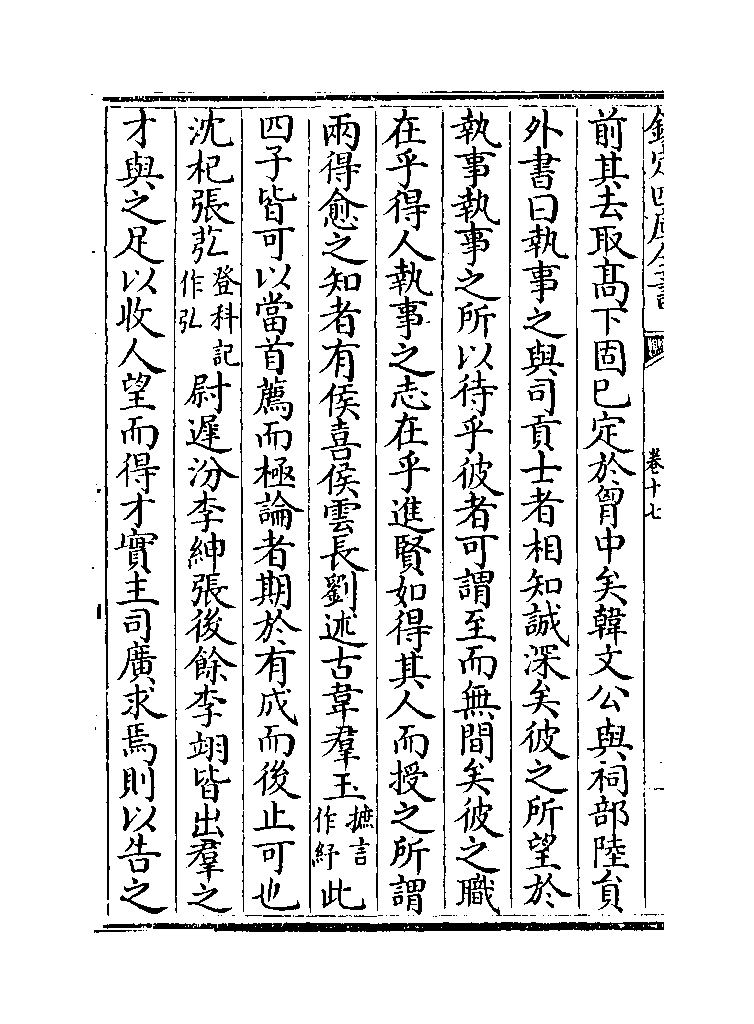 欽定四庫全書
卷十七
前其去取髙下固已定於胷中矣韓文公與祠部陸貟
外書曰執事之與司貢士者相知誠深矣彼之所望於
執事執事之所以待乎彼者可謂至而無間矣彼之職
在乎得人執事之志在乎進賢如得其人而授之所謂
兩得愈之知者有侯喜侯雲長劉述古韋羣玉摭言作紓此
四子皆可以當首薦而極論者期於有成而後止可也
沈杞張䒟登科記作弘尉遲汾李紳張後餘李翊皆出羣之
才與之足以收人望而得才實主司廣求焉則以告之